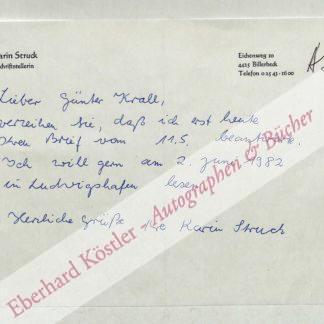 Karin Struck
Schriftstellerin
Eichenweg 10
4425 Billerbeck
Telefon 0 25 43 - 16 00
Lieber Günter Krall,
verzeihen Sie, daß ich erst heute
Ihren Brief vom 11.5. beantworte.
Ich will gern am 2. Juni 1982
in Ludwigshafen lesen.
Herzliche Grüße Ihre Karin Struck
Eberhard Köstler - Autographen & Bücher